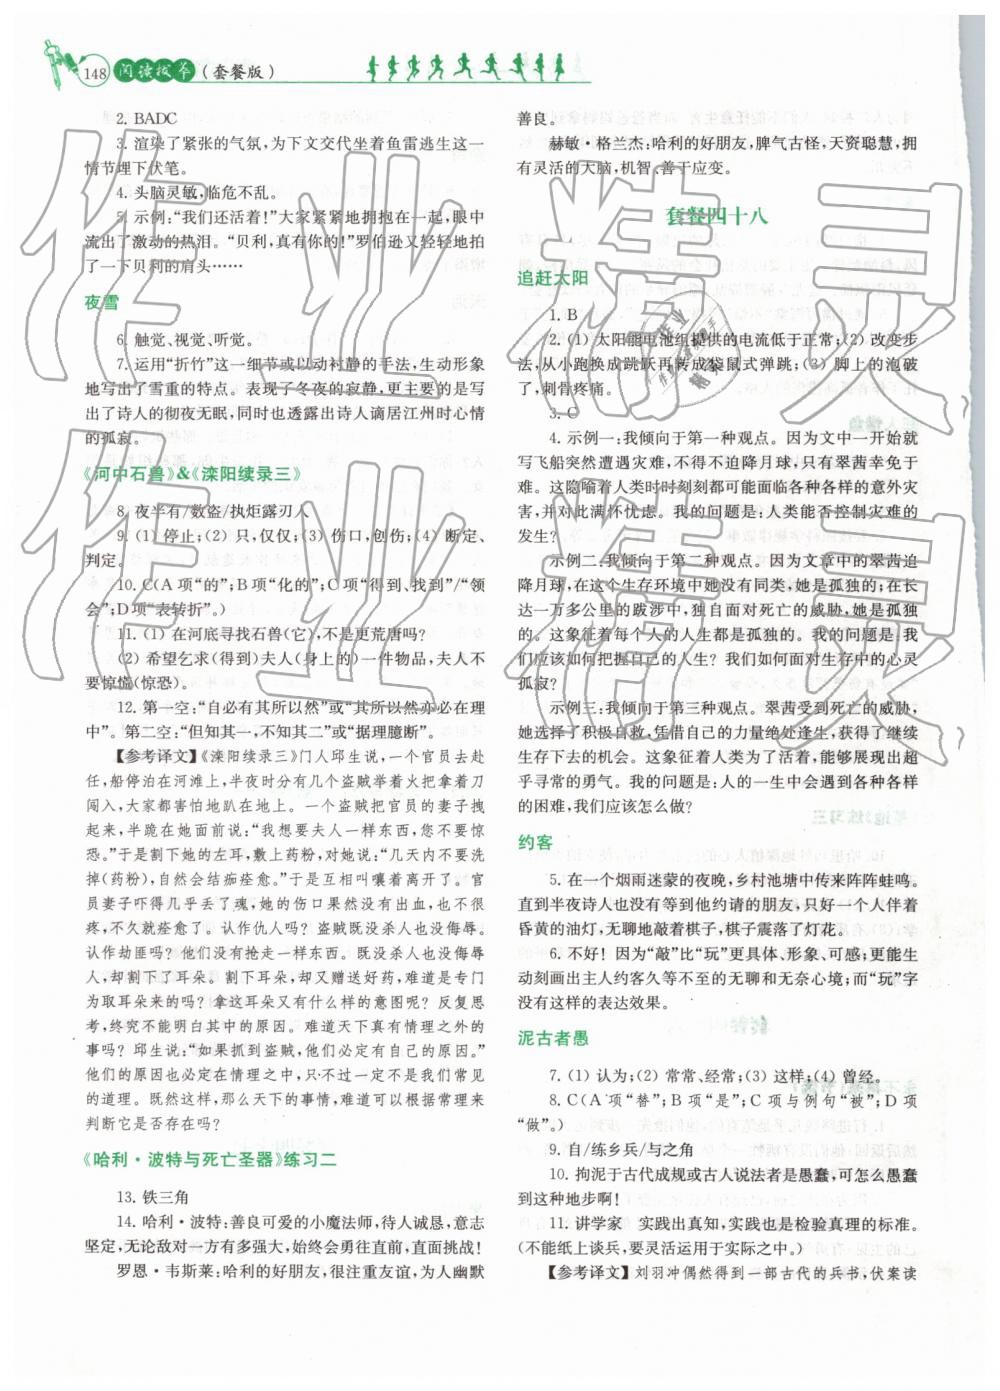 148 阅读拔萃（套餐版）
2. BADC
3. 渲染了紧张的气氛,为下文交代坐着鱼雷逃生这一
情节埋下伏笔。
4. 头脑灵敏,临危不乱。
5. 示例:“我们还活着!”大家紧紧地拥抱在一起,眼中
流出了激动的热泪。“贝利,真有你的!”罗伯逊又轻轻地拍
了一下贝利的肩头……
夜雪
6. 触觉、视觉、听觉。
7. 运用“折竹”这一细节或以动衬静的手法,生动形象
地写出了雪重的特点。表现了冬夜的寂静,更主要的是写
出了诗人的彻夜无眠,同时也透露出诗人谪居江州时心情
的孤寂。
《河中石兽》&《滦阳续录三》
8. 夜半有/数盗/执炬露刃入
9. (1) 停止;(2) 只,仅仅;(3) 伤口,创伤;(4) 断定、
判定。
10. C(A 项“的”;B 项“化的”;C 项“得到、找到”/“领
会”;D 项“表转折”。)
11. (1) 在河底寻找石兽(它),不是更荒唐吗?
(2) 希望乞求(得到)夫人(身上的)一件物品,夫人不
要惊慌(惊恐)。
12. 第一空:“自必有其所以然”或“其所以然亦必在理
中”。第二空:“但知其一,不知其二”或“据理臆断”。
【参考译文】《滦阳续录三》门人邱生说,一个官员去赴
任,船停泊在河滩上,半夜时分有几个盗贼举着火把拿着刀
闯入,大家都害怕地趴在地上。一个盗贼把官员的妻子拽
起来,半跪在她面前说:“我想要夫人一样东西,您不要惊
恐。”于是割下她的左耳,敷上药粉,对她说:“几天内不要洗
掉(药粉),自然会结痂痊愈。”于是互相叫嚷着离开了。官
员妻子吓得几乎丢了魂,她的伤口果然没有出血,也不很
疼,不久就痊愈了。认作仇人吗？既没杀人也没侮辱。
认作劫匪吗？他们没有抢走一样东西。既没杀人也没侮辱
人,却割下了耳朵。割下耳朵,却又赠送好药,难道是专门
为取耳朵来的吗? 拿这耳朵又有什么样的意图呢? 反复思
考,终究不能明白其中的原因。难道天下真有情理之外的
事吗? 邱生说:“如果抓到盗贼,他们必定有自己的原因。”
他们的原因也必定在情理之中,只不过一定不是我们常见
的道理。那么天下的事情,难道可以根据常理来
判断它是否存在吗?
《哈利·波特与死亡圣器》练习二
13. 铁三角
14. 哈利·波特:善良可爱的小魔法师,待人诚恳,意志
坚定,无论敌对一方有多强大,始终会勇往直前,直面挑战!
罗恩·韦斯莱:哈利的好朋友,很注重友谊,为人幽默
善良。
赫敏·格兰杰:哈利的好朋友,脾气古怪,天资聪慧,拥
有灵活的大脑,机智、善于应变。
套餐四十八
追赶太阳
1. B
2. (1) 太阳能电池组提供的电流低于正常;(2) 改变步
法,从小跑换成跳跃再转成袋鼠式弹跳;(3) 脚上的泡破
了,刺骨疼痛。
3. C
4. 示例一:我倾向于第一种观点。因为文中一开始就
写飞船突然遭遇灾难,不得不迫降月球,只有翠茜幸免于
难。这隐喻着人类时时刻刻都可能面临各种各样的意外灾
害,并对此满怀忧虑。我的问题是:人类能否控制灾难的
发生?
示例二:我倾向于第二种观点。因为文章中的翠茜迫
降月球,在这个生存环境中她没有同类,她是孤独的;在长
达一万多公里的跋涉中,独自面对死亡的威胁,她是孤独
的。这象征着每个人的人生都是孤独的。我的问题是:我
们应该如何把握自己的人生? 我们如何面对生存中的心灵
孤寂?
示例三:我倾向于第三种观点。翠茜受到死亡的威胁,
她选择了积极自救,凭借自己的力量绝处逢生,获得了继续
生存下去的机会。这象征着人类为了活着,能够展现出超
乎寻常的勇气。我的问题是:人的一生中会遇到各种各样
的困难,我们应该怎么做?
约客
5. 在一个烟雨迷蒙的夜晚,乡村池塘中传来阵阵蛙鸣。
直到半夜诗人也没有等到他约请的朋友,只好一个人伴着
昏黄的油灯,无聊地敲着棋子,棋子震落了灯花。
6. 不好! 因为“敲”比“玩”更具体、形象、可感;更能生
动刻画出主人约客久等不至的无聊和无奈心境;而“玩”字
没有这样的表达效果。
泥古者愚
7. (1) 认为;(2) 常常、经常;(3) 这样;(4) 曾经。
8. C(A 项“替”;B 项“是”;C 项与例句“被”;D 项
“做”。)
9. 自/练乡兵/与之角
10. 拘泥于古代成规或古人说法者是愚蠢,可怎么愚蠢
到这种地步啊!
11. 讲学家　实践出真知,实践也是检验真理的标准。
(不能纸上谈兵,要灵活运用于实际之中。)
【参考译文】刘羽冲偶然得到一部古代的兵书,伏案读
作业精灵
作业精灵